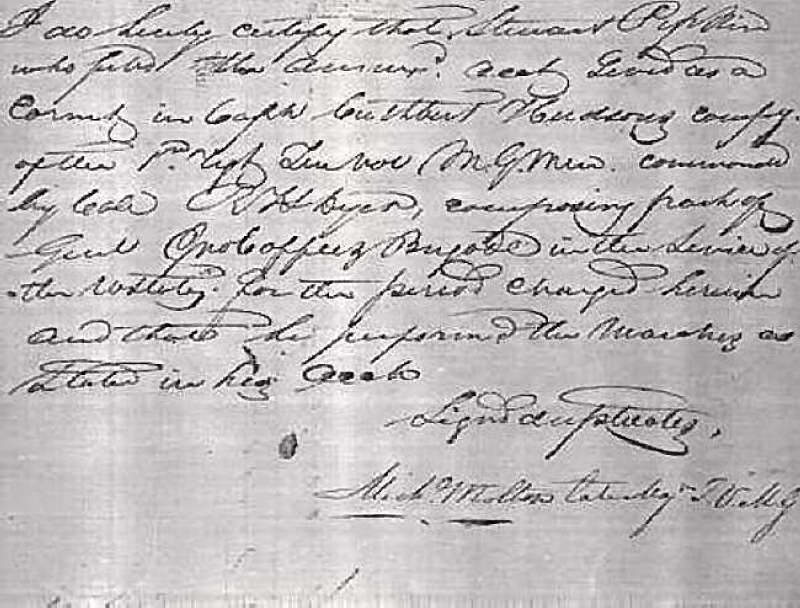 I do hereby certify that Stewart Pipkin
who filed the annexd. acct Served as a
Cornet in Capt Cuthbert Hudsons compy.
of the 1st. Regt Tin vol M. G. Men. commanded
by Colo R H Dyer, composing part of
Genl Jno Coffees Brigade in the Service of
the UStates. for the period charged herein
and that he performed the Marches as
Stated in his acct
Signd duplicates,
T V M G